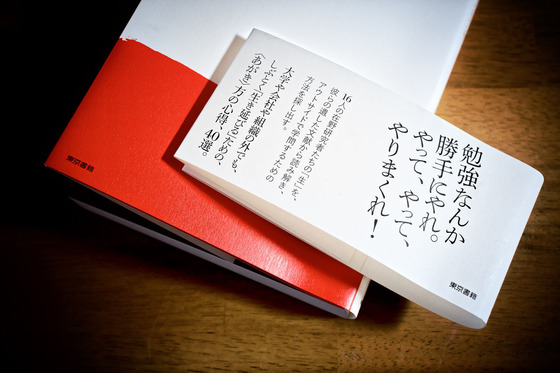 勉強なんか
勝手にやれ。
やって、やって、
やりまくれ！
16人の在野研究者たちの「生」を、
彼らの遺した文献から読み解き、
アウトサイドで学問するための
方法を探し出す。
大学や会社や組織の外でも、
しぶとく「生き延びる」ための、
〈あがき〉方の心得、40選。
東京書籍
東京書籍